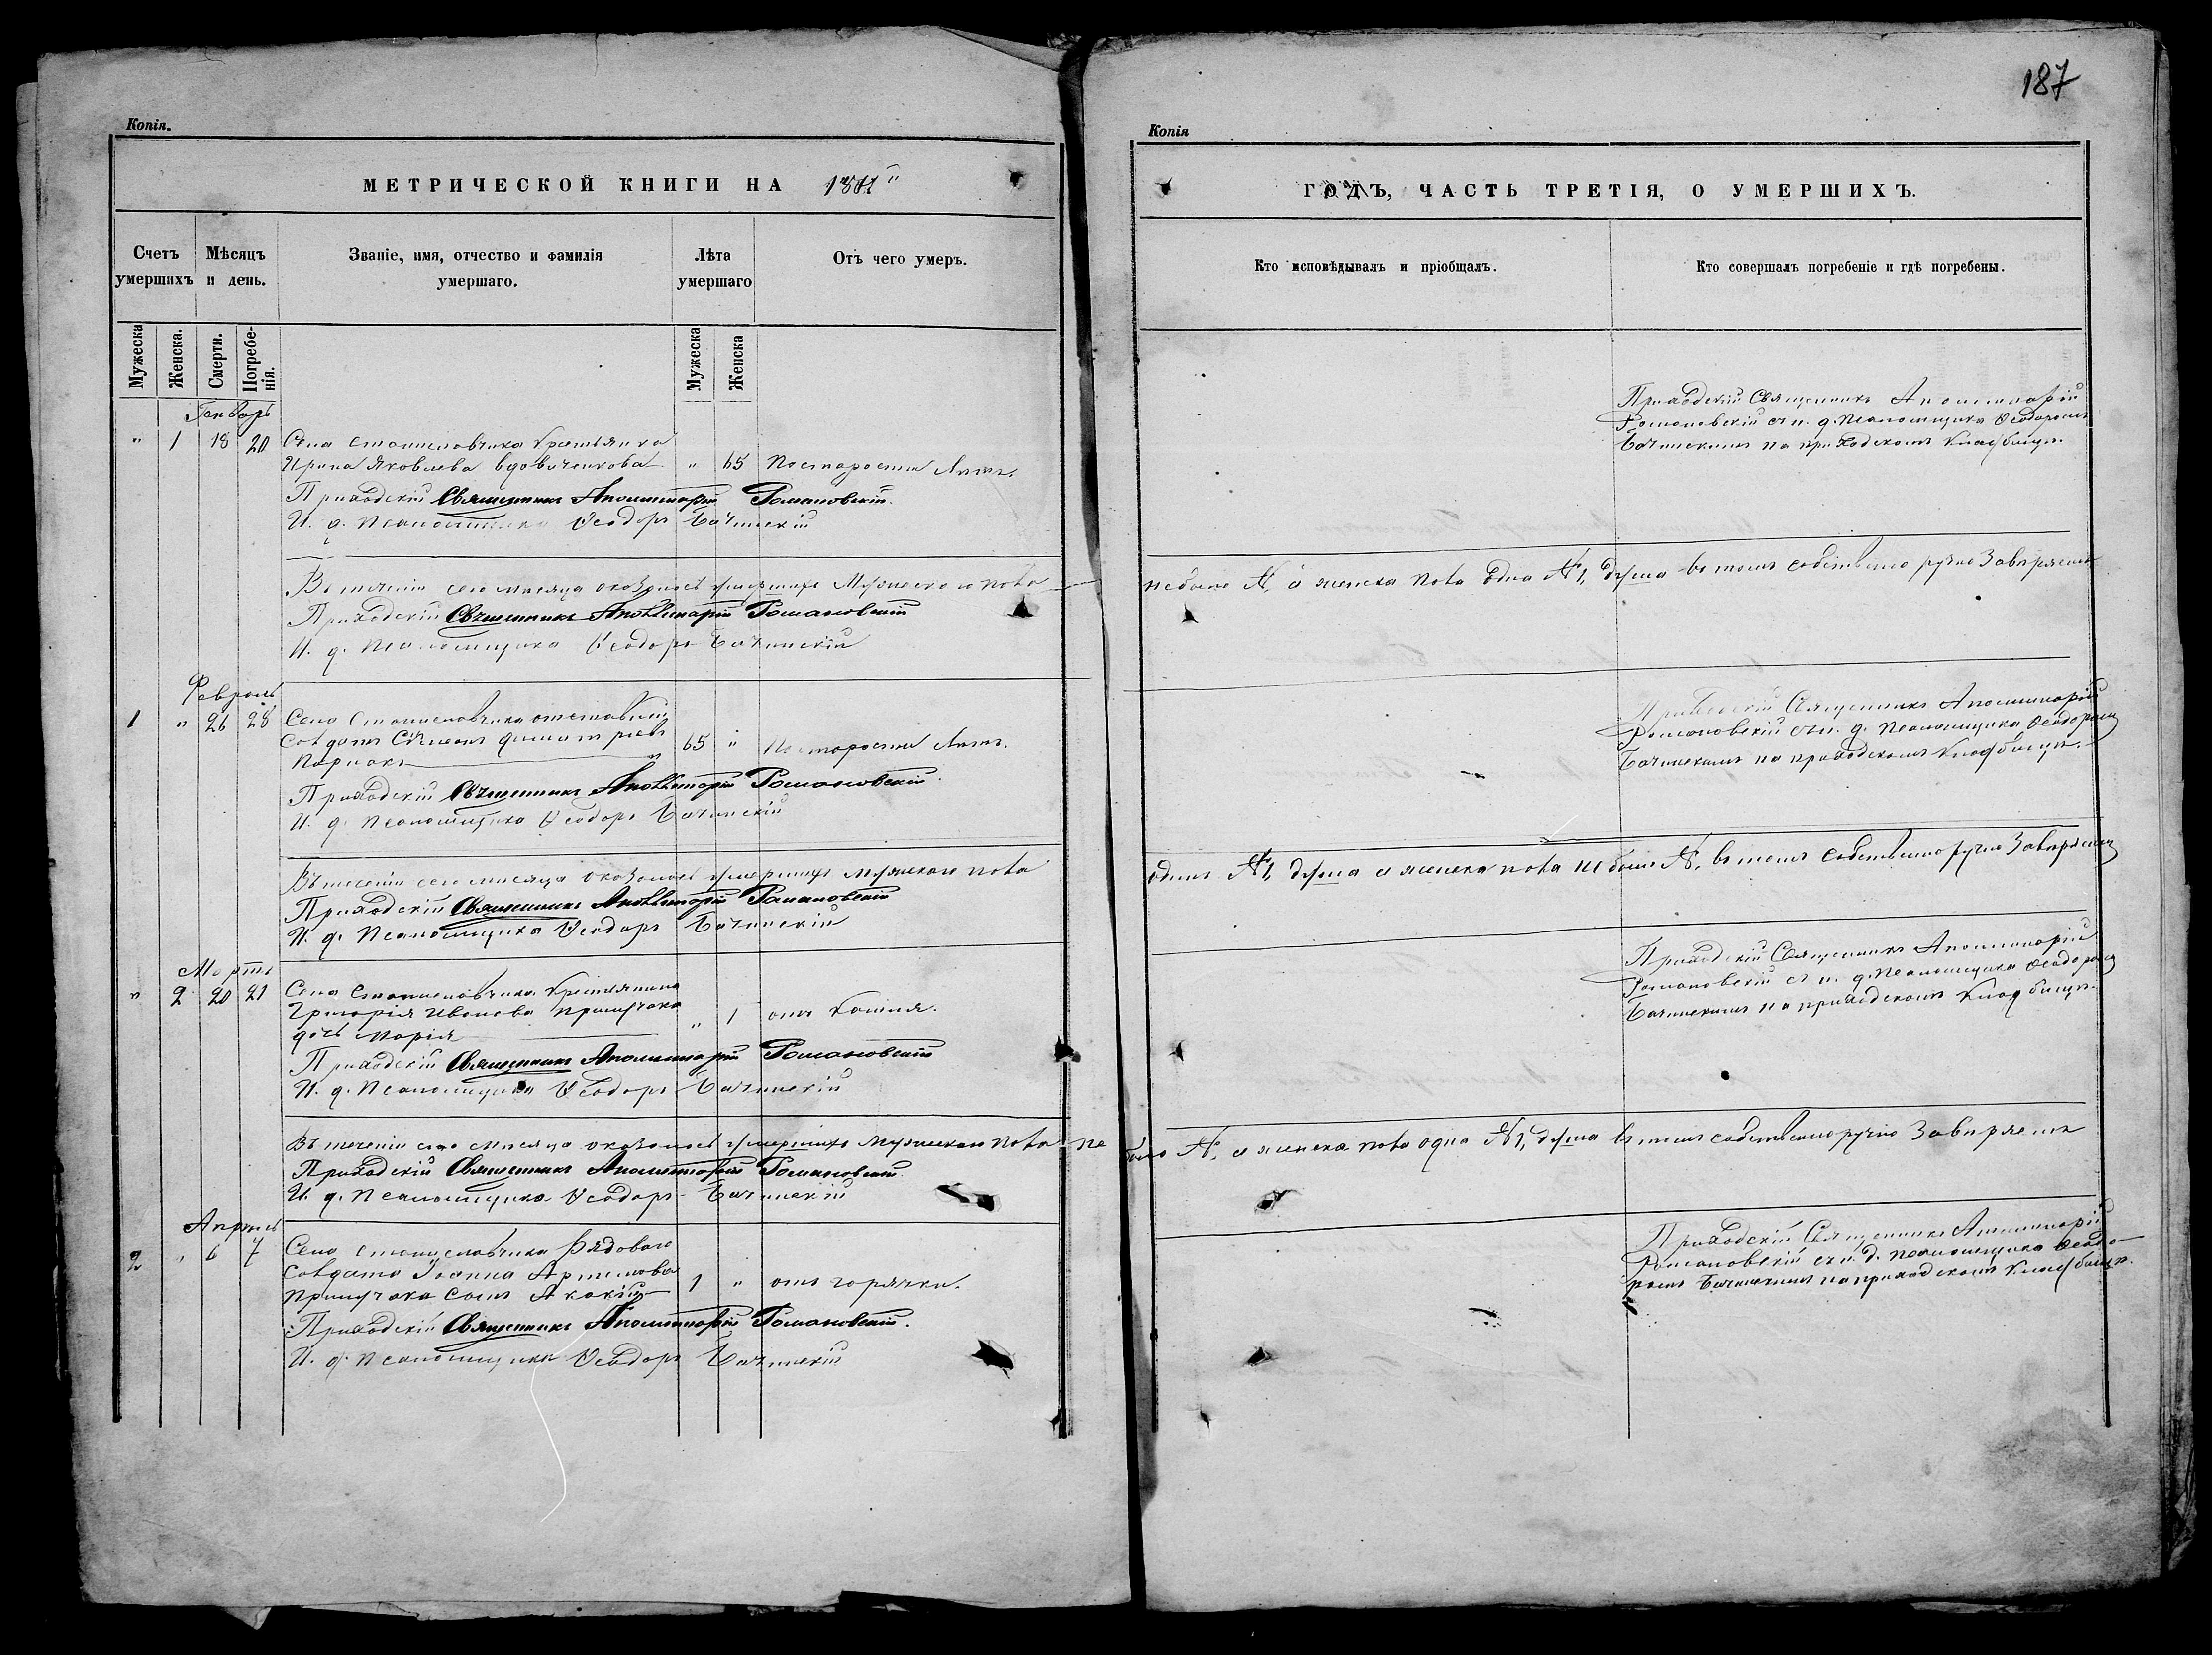 187
Копія.
МЕТРИЧЕСКОЙ КНИГИ НА
Счетъ умершихъ
Мѣсяцъ и день.
Званіе, имя, отчество и фамилія умершаго.
Лѣта умершаго
Отъ чего умеръ.
Мужеска
Женска.
Смерти.
Погребенія.
Мужеска
Женска
Январь
" 1 18 20 Села Станиславчика крестьянка
Ирина Яковлева вдовиченкова " 65 По старости лѣтъ.
Приходскій Священникъ Аполлинарій Романовскій.
И. д. Псаломщика Ѳеодоръ Бачинскій
Въ теченіи сего мѣсяца оказалось умершихъ Мужеска пола
Приходскій Священникъ Аполлинарій Романовскій
И. д. Псаломщика Ѳеодоръ Бачинскій
Февраль
1 " 26 28 Села Станиславчика отставный
Солдатъ Сѵмеонъ Димитріевъ 65 " По старости лѣтъ.
Приходскій Священникъ Аполлинарій Романовскій.
И. д. Псаломщика Ѳеодоръ Бачинскій
Въ теченіи сего мѣсяца оказалось умершихъ мужеска пола
Приходскій Священникъ Аполлинарій Романовскій
И. д. Псаломщика Ѳеодоръ Бачинскій
Мартъ
" 2 20 21 Села Станиславчика крестьянина
Григорія Иванова Прищчака " 1 отъ кашля.
дочь Марія
Приходскій Священникъ Аполлинарій Романовскій
И. д. Псаломщика Ѳеодоръ Бачинскій
Въ теченіи сего мѣсяца оказалось умершихъ мужеска пола не
Приходскій Священникъ Аполлинарій Романовскій.
И. д. Псаломщика Ѳеодоръ Бачинскій
Апрѣль
2 " 6 7 Села Станиславчика Рядоваго
Солдата Іоанна Артемова 1 " отъ горячки.
Прищчака сынъ Акакій
Приходскій Священникъ Аполлинарій Романовскій.
И. д. Псаломщика Ѳеодоръ Бачинскій
Копія
ГОДЪ, ЧАСТЬ ТРЕТІЯ, О УМЕРШИХЪ.
Кто исповѣдывалъ и пріобщалъ.
Кто совершалъ погребеніе и гдѣ погребены.
Приходскій Священникъ Аполлинарій
Романовскій съ и. д. Псаломщика Ѳеодоромъ
Бачинскимъ на приходскомъ кладбищѣ.
небыло №, а женска пола одна №1, душа въ томъ собственно ручно Завѣряемъ
Приходскій Священникъ Аполлинарій
Романовскій съ и. д. Псаломщика Ѳеодоромъ
Бачинскимъ на приходскомъ кладбищѣ.
одинъ №1, душа а женска пола не было №, въ томъ собственно ручно Завѣряемъ
Приходскій Священникъ Аполлинарій
Романовскій съ и. д. Псаломщика Ѳеодоромъ
Бачинскимъ на приходскомъ кладбищѣ.
было №, а женска пола одна №1, душа въ томъ собственноручно Завѣряемъ
Приходскій Священникъ Аполлинарій
Романовскій съ и. д. Псаломщика Ѳеодо-
ромъ Бачинскимъ на приходскомъ кладбищѣ.